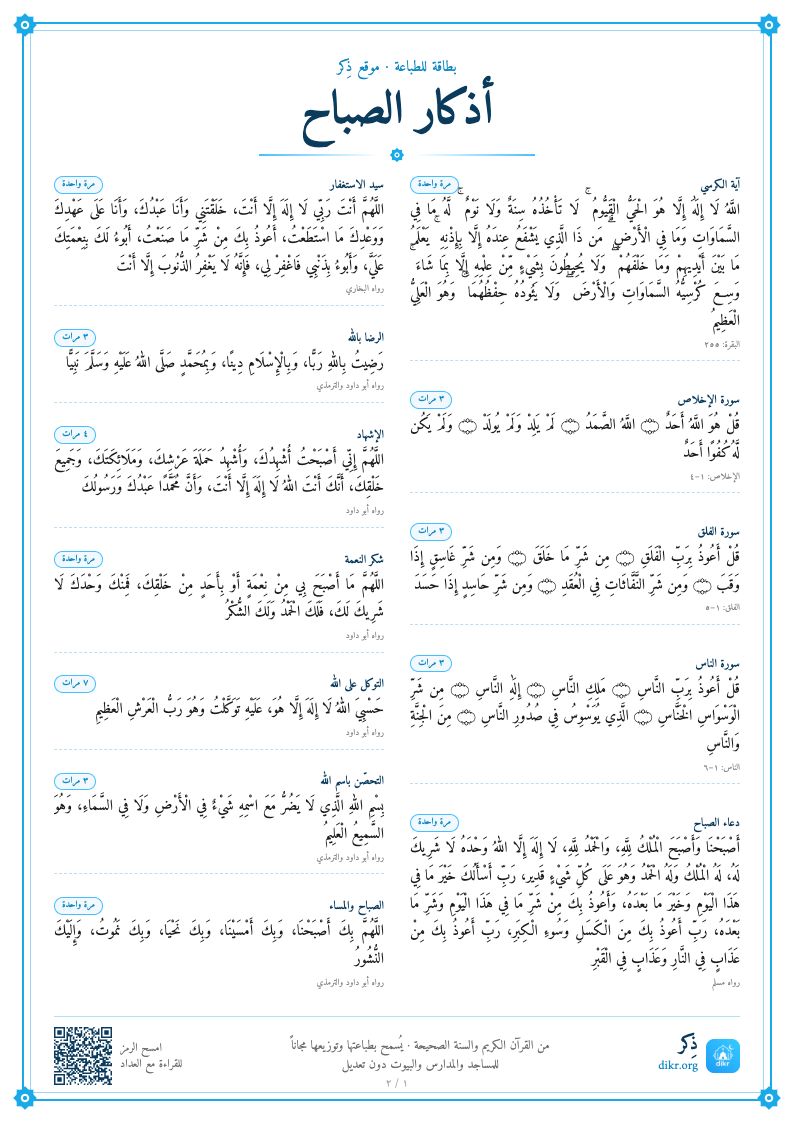 بطاقة للطباعة · موقع ذِكر
أذكار الصباح
آية الكرسي
مرة واحدة
اللَّهُ لَا إِلَٰهَ إِلَّا هُوَ الْحَيُّ الْقَيُّومُ ۚ لَا تَأْخُذُهُ سِنَةٌ وَلَا نَوْمٌ ۚ لَّهُ مَا فِي
السَّمَاوَاتِ وَمَا فِي الْأَرْضِ ۗ مَن ذَا الَّذِي يَشْفَعُ عِندَهُ إِلَّا بِإِذْنِهِ ۚ يَعْلَمُ
مَا بَيْنَ أَيْدِيهِمْ وَمَا خَلْفَهُمْ ۖ وَلَا يُحِيطُونَ بِشَيْءٍ مِّنْ عِلْمِهِ إِلَّا بِمَا شَاءَ ۚ
وَسِعَ كُرْسِيُّهُ السَّمَاوَاتِ وَالْأَرْضَ ۖ وَلَا يَئُودُهُ حِفْظُهُمَا ۚ وَهُوَ الْعَلِيُّ
الْعَظِيمُ
البقرة: ٢٥٥
سورة الإخلاص
٣ مرات
قُلْ هُوَ اللَّهُ أَحَدٌ ۝ اللَّهُ الصَّمَدُ ۝ لَمْ يَلِدْ وَلَمْ يُولَدْ ۝ وَلَمْ يَكُن
لَّهُ كُفُوًا أَحَدٌ
الإخلاص: ١-٤
سورة الفلق
٣ مرات
قُلْ أَعُوذُ بِرَبِّ الْفَلَقِ ۝ مِن شَرِّ مَا خَلَقَ ۝ وَمِن شَرِّ غَاسِقٍ إِذَا
وَقَبَ ۝ وَمِن شَرِّ النَّفَّاثَاتِ فِي الْعُقَدِ ۝ وَمِن شَرِّ حَاسِدٍ إِذَا حَسَدَ
الفلق: ١-٥
سورة الناس
٣ مرات
قُلْ أَعُوذُ بِرَبِّ النَّاسِ ۝ مَلِكِ النَّاسِ ۝ إِلَٰهِ النَّاسِ ۝ مِن شَرِّ
الْوَسْوَاسِ الْخَنَّاسِ ۝ الَّذِي يُوَسْوِسُ فِي صُدُورِ النَّاسِ ۝ مِنَ الْجِنَّةِ
وَالنَّاسِ
الناس: ١-٦
دعاء الصباح
مرة واحدة
أَصْبَحْنَا وَأَصْبَحَ الْمُلْكُ لِلَّهِ، وَالْحَمْدُ لِلَّهِ، لَا إِلَهَ إِلَّا اللهُ وَحْدَهُ لَا شَرِيكَ
لَهُ، لَهُ الْمُلْكُ وَلَهُ الْحَمْدُ وَهُوَ عَلَى كُلِّ شَيْءٍ قَدِير، رَبِّ أَسْأَلُكَ خَيْرَ مَا فِي
هَذَا الْيَوْمِ وَخَيْرَ مَا بَعْدَهُ، وَأَعُوذُ بِكَ مِنْ شَرِّ مَا فِي هَذَا الْيَوْمِ وَشَرِّ مَا
بَعْدَهُ، رَبِّ أَعُوذُ بِكَ مِنَ الْكَسَلِ وَسُوءِ الْكِبَرِ، رَبِّ أَعُوذُ بِكَ مِنْ
عَذَابٍ فِي النَّارِ وَعَذَابٍ فِي الْقَبْرِ
رواه مسلم
سيد الاستغفار
مرة واحدة
اللَّهُمَّ أَنْتَ رَبِّي لَا إِلَهَ إِلَّا أَنْتَ، خَلَقْتَنِي وَأَنَا عَبْدُكَ، وَأَنَا عَلَى عَهْدِكَ
وَوَعْدِكَ مَا اسْتَطَعْتُ، أَعُوذُ بِكَ مِنْ شَرِّ مَا صَنَعْتُ، أَبُوءُ لَكَ بِنِعْمَتِكَ
عَلَيَّ، وَأَبُوءُ بِذَنْبِي فَاغْفِرْ لِي، فَإِنَّهُ لَا يَغْفِرُ الذُّنُوبَ إِلَّا أَنْتَ
رواه البخاري
الرضا بالله
٣ مرات
رَضِيتُ بِاللهِ رَبًّا، وَبِالْإِسْلَامِ دِينًا، وَبِمُحَمَّدٍ صَلَّى اللهُ عَلَيْهِ وَسَلَّمَ نَبِيًّا
رواه أبو داود والترمذي
الإشهاد
٤ مرات
اللَّهُمَّ إِنِّي أَصْبَحْتُ أُشْهِدُكَ، وَأُشْهِدُ حَمَلَةَ عَرْشِكَ، وَمَلَائِكَتَكَ، وَجَمِيعَ
خَلْقِكَ، أَنَّكَ أَنْتَ اللهُ لَا إِلَهَ إِلَّا أَنْتَ، وَأَنَّ مُحَمَّدًا عَبْدُكَ وَرَسُولُكَ
رواه أبو داود
شكر النعمة
مرة واحدة
اللَّهُمَّ مَا أَصْبَحَ بِي مِنْ نِعْمَةٍ أَوْ بِأَحَدٍ مِنْ خَلْقِكَ، فَمِنْكَ وَحْدَكَ لَا
شَرِيكَ لَكَ، فَلَكَ الْحَمْدُ وَلَكَ الشُّكْرُ
رواه أبو داود
التوكل على الله
٧ مرات
حَسْبِيَ اللهُ لَا إِلَهَ إِلَّا هُوَ، عَلَيْهِ تَوَكَّلْتُ وَهُوَ رَبُّ الْعَرْشِ الْعَظِيمِ
رواه أبو داود
التحصّن باسم الله
٣ مرات
بِسْمِ اللهِ الَّذِي لَا يَضُرُّ مَعَ اسْمِهِ شَيْءٌ فِي الْأَرْضِ وَلَا فِي السَّمَاءِ، وَهُوَ
السَّمِيعُ الْعَلِيمُ
رواه أبو داود والترمذي
الصباح والمساء
مرة واحدة
اللَّهُمَّ بِكَ أَصْبَحْنَا، وَبِكَ أَمْسَيْنَا، وَبِكَ نَحْيَا، وَبِكَ نَمُوتُ، وَإِلَيْكَ
النُّشُورُ
رواه أبو داود والترمذي
dikr
ذِكر
dikr.org
من القرآن الكريم والسنة الصحيحة · يُسمح بطباعتها وتوزيعها مجاناً
للمساجد والمدارس والبيوت دون تعديل
١ / ٢
امسح الرمز
للقراءة مع العداد